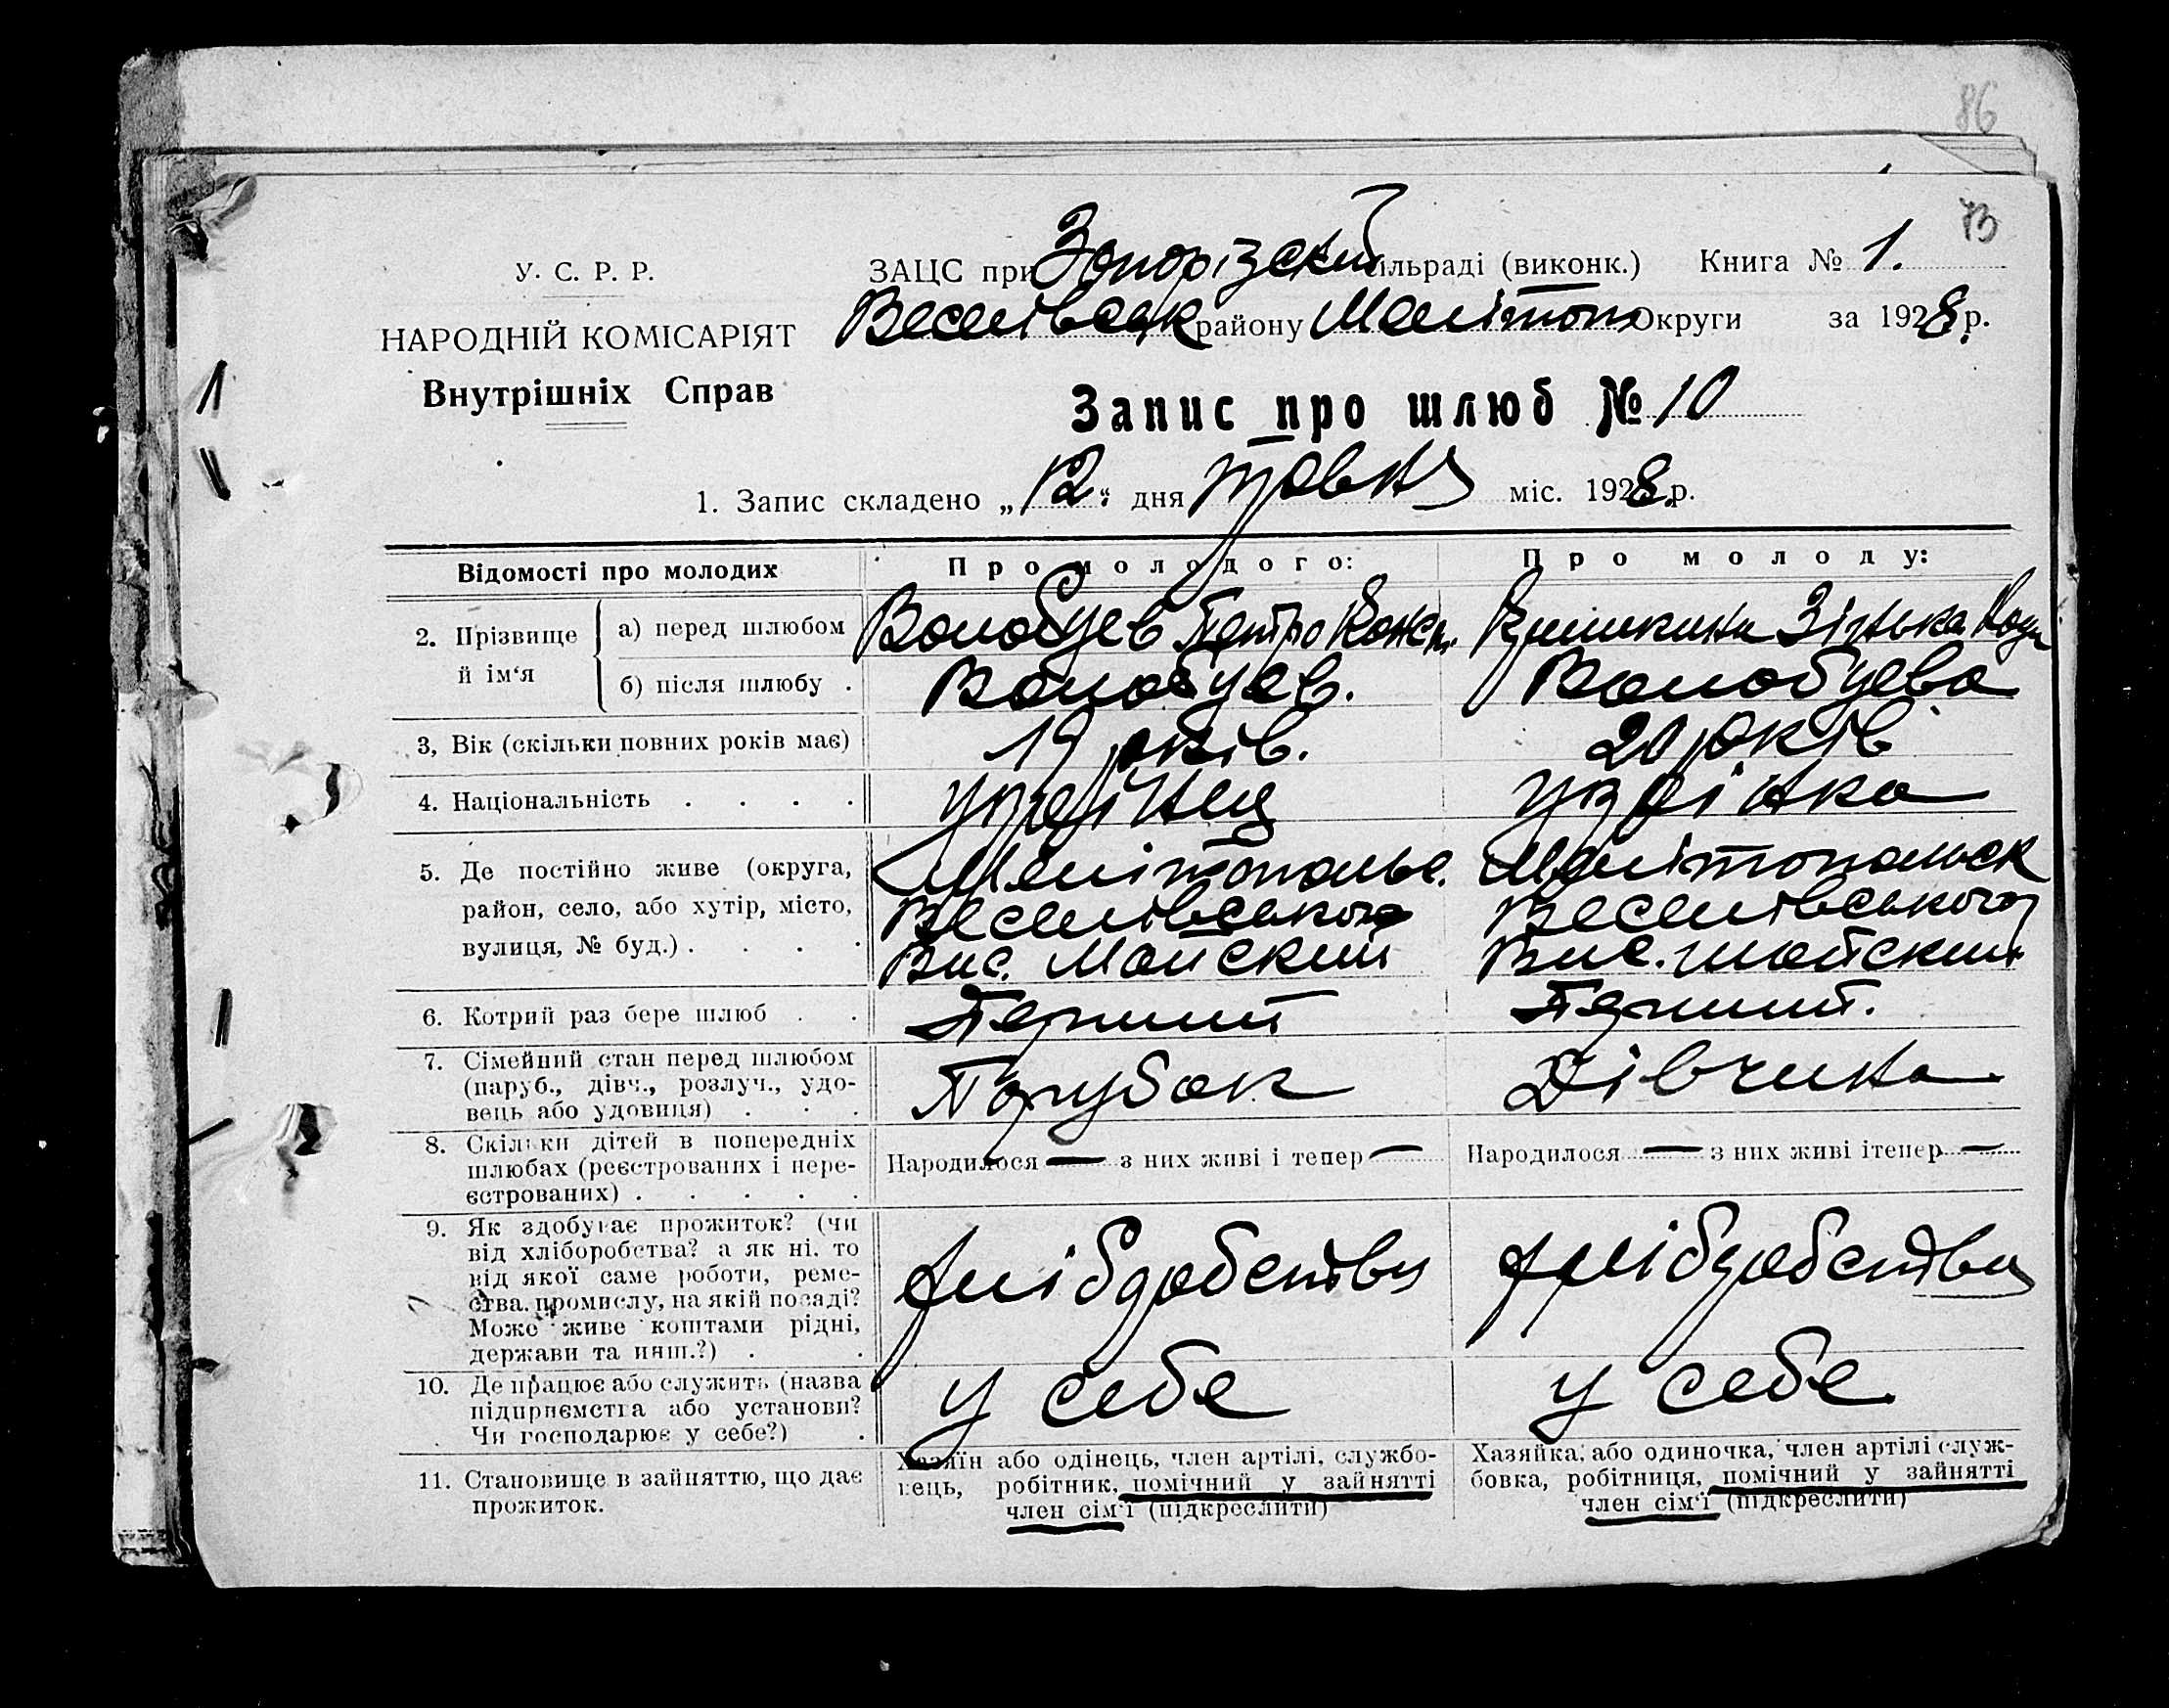 86
73
У. С. Р. Р.
НАРОДНІЙ КОМІСАРІЯТ
Внутрішніх Справ
ЗАЦС при Запорізский сільраді (виконк.) Книга № 1.
Веселівськ району Меліттоп Округи за 1928 р.
Запис про шлюб № 10
1. Запис складено „12“ дня травня міс. 1928 р.
Відомості про молодих
Про молодого:
Про молоду:
2. Прізвище й ім‘я
а) перед шлюбом
Волобуев Петро
Зінька
б) після шлюбу .
Волобуев.
Волобуева
3, Вік (скільки повних років має)
19 років.
20 років
4. Національність . . . .
українец
українка
5. Де постійно живе (округа,
район, село, або хутір, місто,
вулиця, № буд.) . . . .
Мелітопольс.
Веселівського
Вис. Майский
Мелітопольск
Веселівського
Вис. Майский
6. Котрий раз бере шлюб . .
Перший
Перший.
7. Сімейний стан перед шлюбом
(паруб., дівч., розлуч., удо-
вець або удовиця) . . .
Парубок
Дівчина
8. Скільки дітей в попередніх
шлюбах (реєстрованих і нере-
єстрованих) . . . . .
Народилося — з них живі і тепер —
Народилося — з них живі ітепер —
9. Як здобуває прожиток? (чи
від хліборобства? а як ні. то
від якої саме роботи, реме-
ства. промислу, на якій посаді?
Може живе коштами рідні,
держави та инш.?) . .
хлібробства
хлібробства
10. Де працює або служить (назва
підприємства або установи?
Чи господарює у себе?) .
у себе
у себе
11. Становище в зайняттю, що дає
прожиток.
Хазяїн або одінець, член артілі, службо-
вець, робітник, помічний у зайнятті
член сім‘ї (підкреслити)
Хазяйка, або одиночка, член артілі служ-
бовка, робітниця, помічний у зайнятті
член сім‘ї (підкреслити)